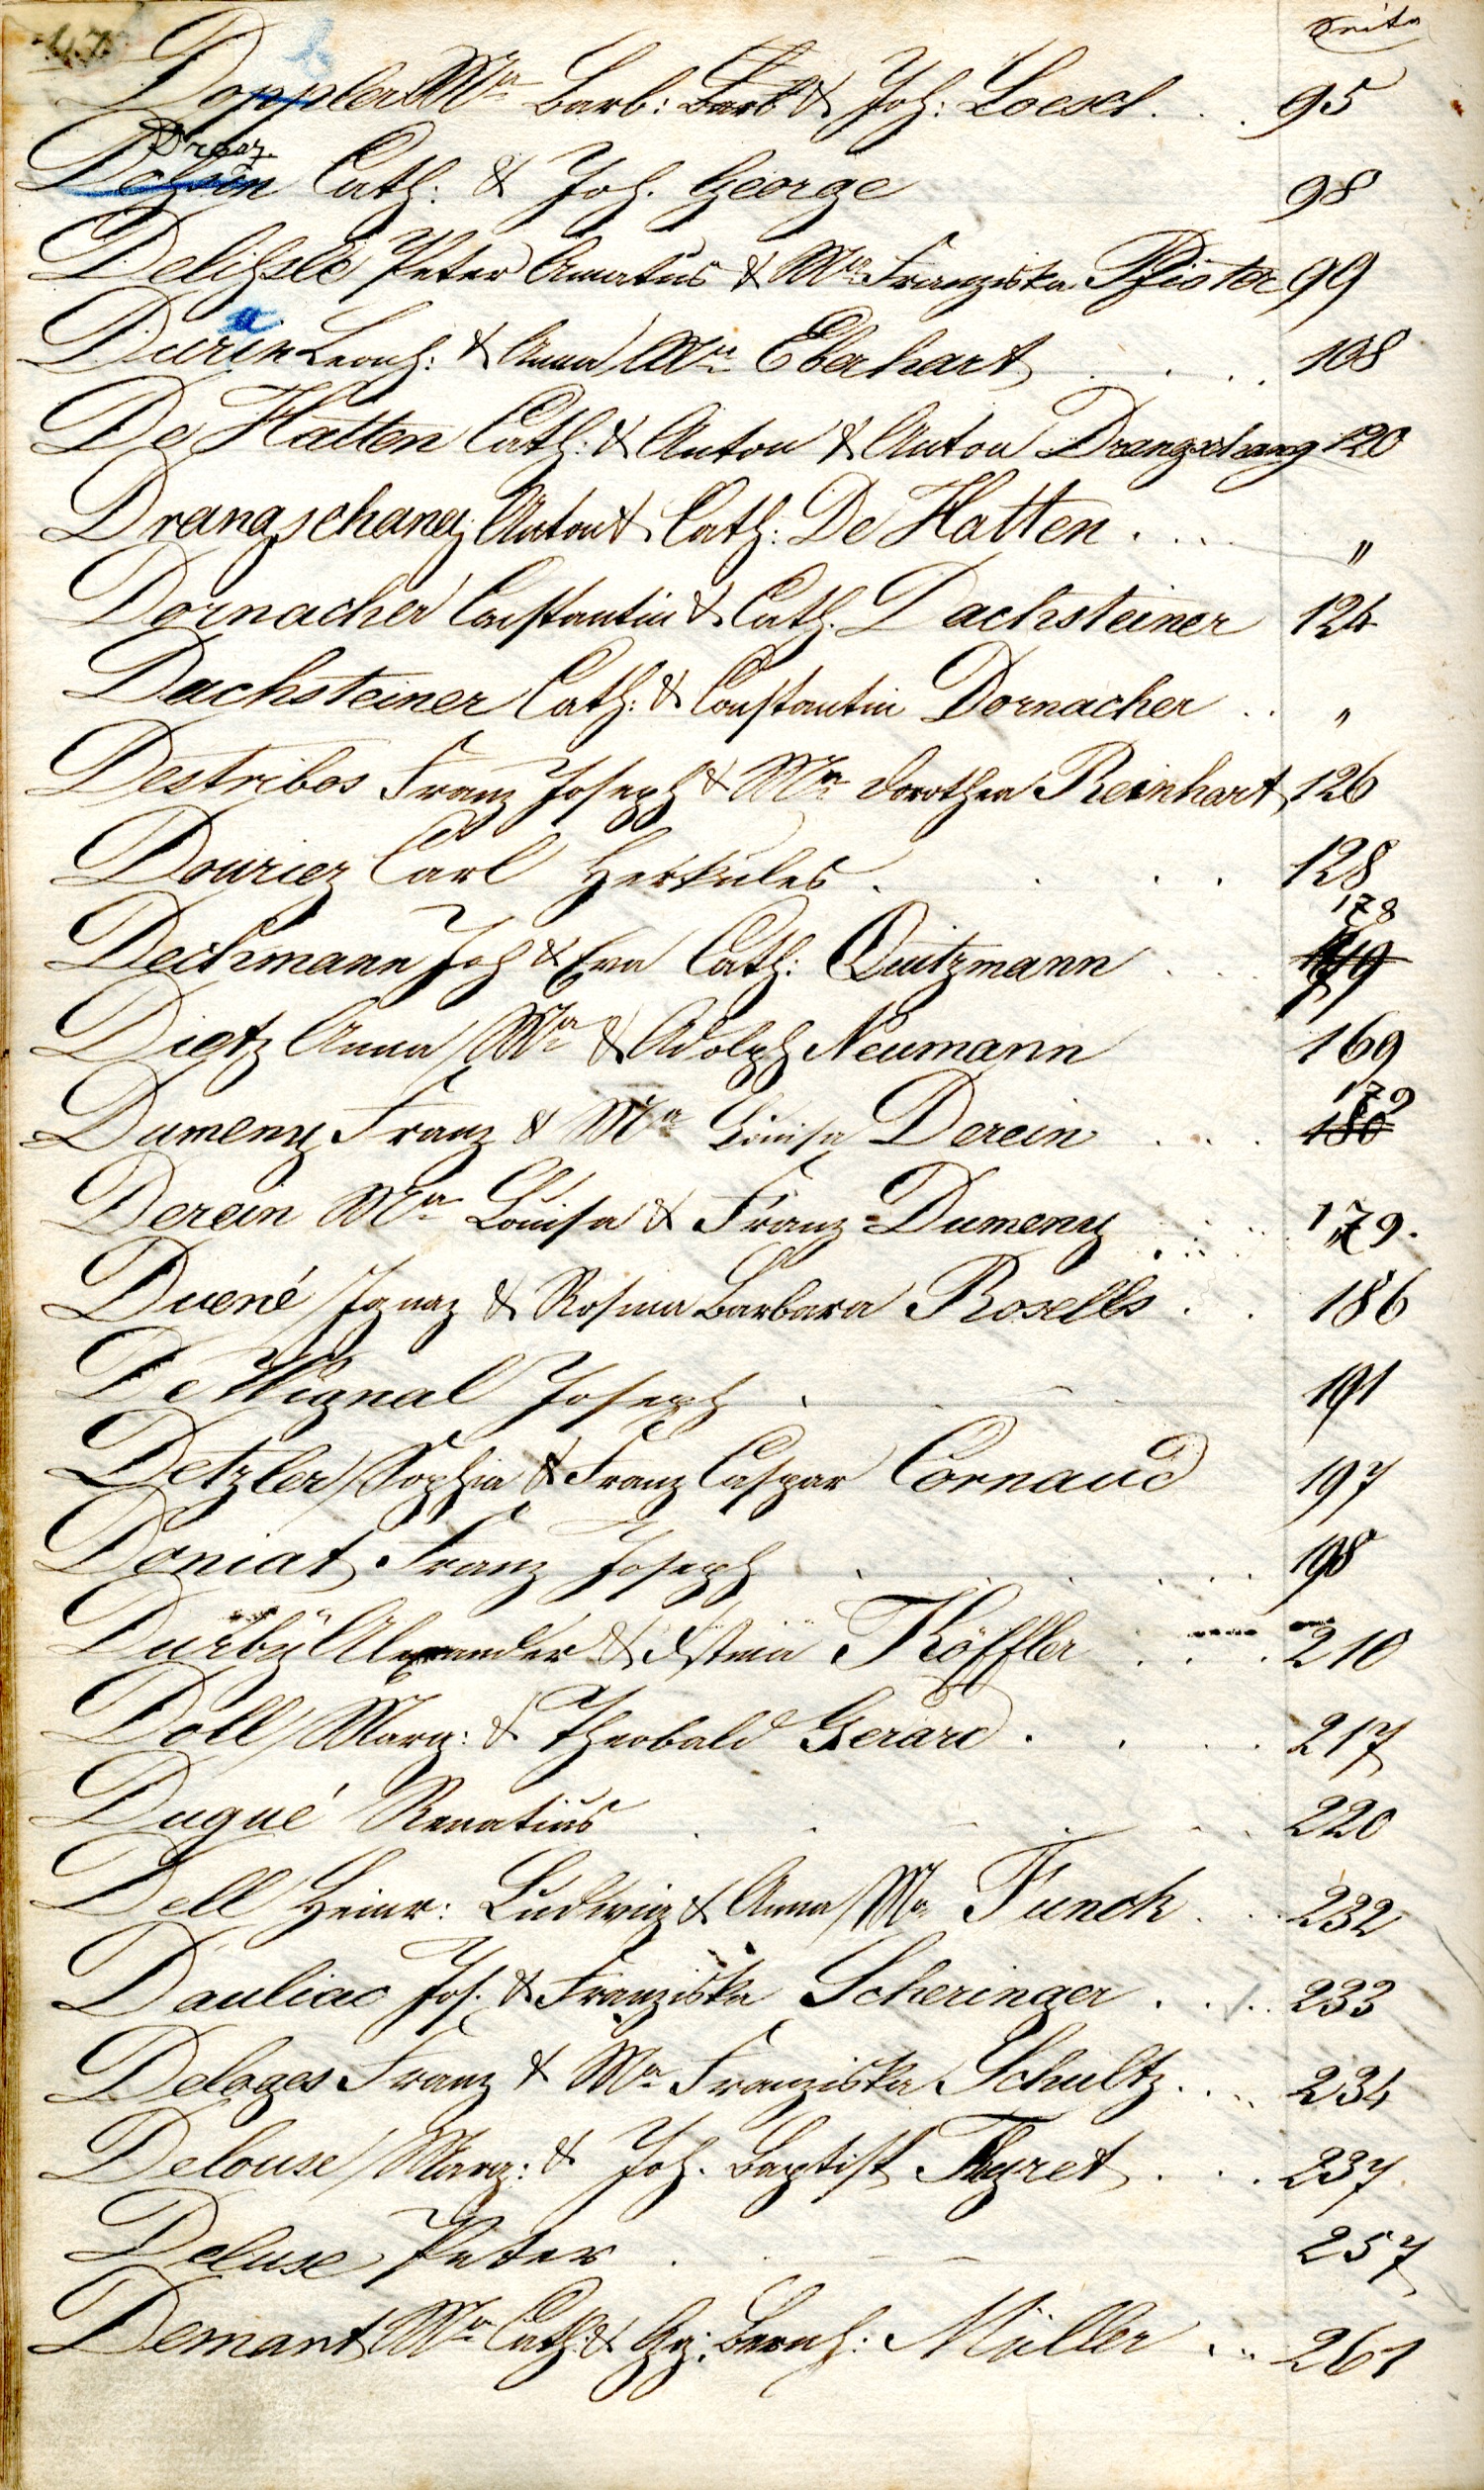 47. Seite
b
Doppler Mª Barb: Barb & Joh: Loesch . . . 95
Draaz.
Cath: & Joh. George 98
Delihsle Peter Amatus & Mª Franziska Pfister 99
a
Durin Leonh: & Anna Mª Eberhart . . . . 108
De Hatten Cath: & Anton & Anton Drangschang 120
Drangschang Anton & Cath: De Hatten . . . "
Dornacher Constantin & Cath. Dachsteiner 124
Dachsteiner Cath: & Constantin Dornacher . . "
Destribos Franz Joseph & Mª Dorothea Reinhart 126
Dourier Carl Herkules . . . . 128
178
Dechmann Joh & Eva Cath: Quitzmann . . . 179
Dietz Anna Mª & Adolph Neumann 169
179
Dumeny Franz & Mª Louisa Derein . . . 180
Derein Mª Louisa & Franz Dumeny . . . 179.
Duené Ignaz & Rosina Barbara Rosells . . 186
De Wignal Joseph . . 191
Detzler Sophia & Franz Caspar Cornaud 197
Doniat Franz Joseph . . . . . . . 198
Durby Alexander & Köffler . . . . 210
Doll Marg: & Theobald Gerard . . . . 217
Dugué Renatus . . . . . . 220
Dell Heinr: Ludwig & Anna Mª Funck . . . 232
Dauliac Jos. & Franziska Scheringer . . . . 233
Deloges Franz & Mª Franziska Schultz . . . . 234
Delouse Marg: & Joh. Baptist Thyret . . . 237
Deluse Peter . . 257
Demant Mª Cath: & Gg: Bernh: Müller . . . 261